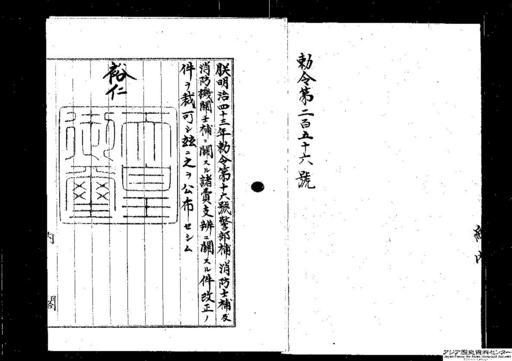 勅令第二百五十六號
朕明治四十三年勅令第十六號警部補消防士補及
消防機關士補ニ關スル諸費支辨ニ關スル件改正ノ
件ヲ裁可シ玆ニ之ヲ公布セシム
裕仁
天皇
御璽
内閣
アジア歴史資料センター